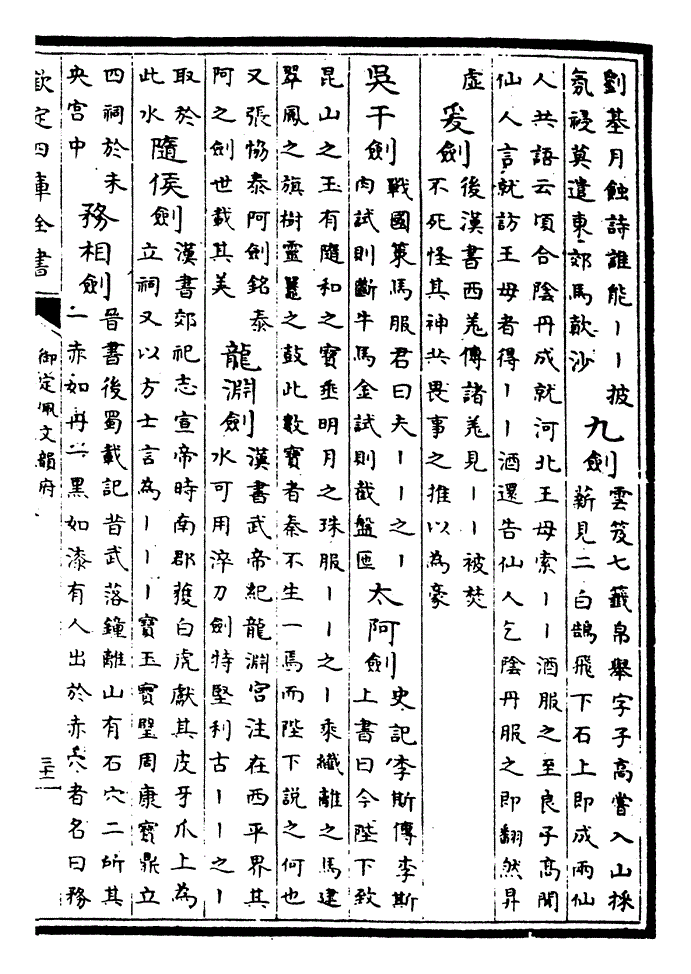 劉基月蝕詩誰能丨丨披
氛祲莫遣東郊馬歕沙
九劍
雲笈七籤帛舉字子高嘗入山採
薪見二白鵠飛下石上即成兩仙
人共語云頃合陰丹成就河北王母索丨丨酒服之至良子高聞
仙人言就訪王母者得丨丨酒還告仙人乞陰丹服之即翻然昇
虛
爰劍
後漢書西羌傳諸羌見丨丨被焚
不死怪其神共畏事之推以為豪
吳干劍
戰國策馬服君曰夫丨丨之丨
肉試則斷牛馬金試則截盤匜
太阿劍
史記李斯傳李斯
上書曰今陛下致
昆山之玉有隨和之寶垂明月之珠服丨丨之丨乘纖離之馬建
翠鳳之旗樹靈鼉之鼓此數寶者秦不生一焉而陛下説之何也
又張協泰阿劍銘泰
阿之劍世載其美
龍淵劍
漢書武帝紀龍淵宮注在西平界其
水可用淬刀劍特堅利古丨丨之丨
取於
此水
隨侯劍
漢書郊祀志宣帝時南郡獲白虎獻其皮牙爪上為
立祠又以方士言為丨丨丨寶玉寶璧周康寶鼎立
四祠於未
央宮中
務相劍
晉書後蜀載記昔武落鍾離山有石穴二所其
一赤如丹一黑如漆有人出於赤穴者名曰務
欽定四庫全書
御定佩文韻府